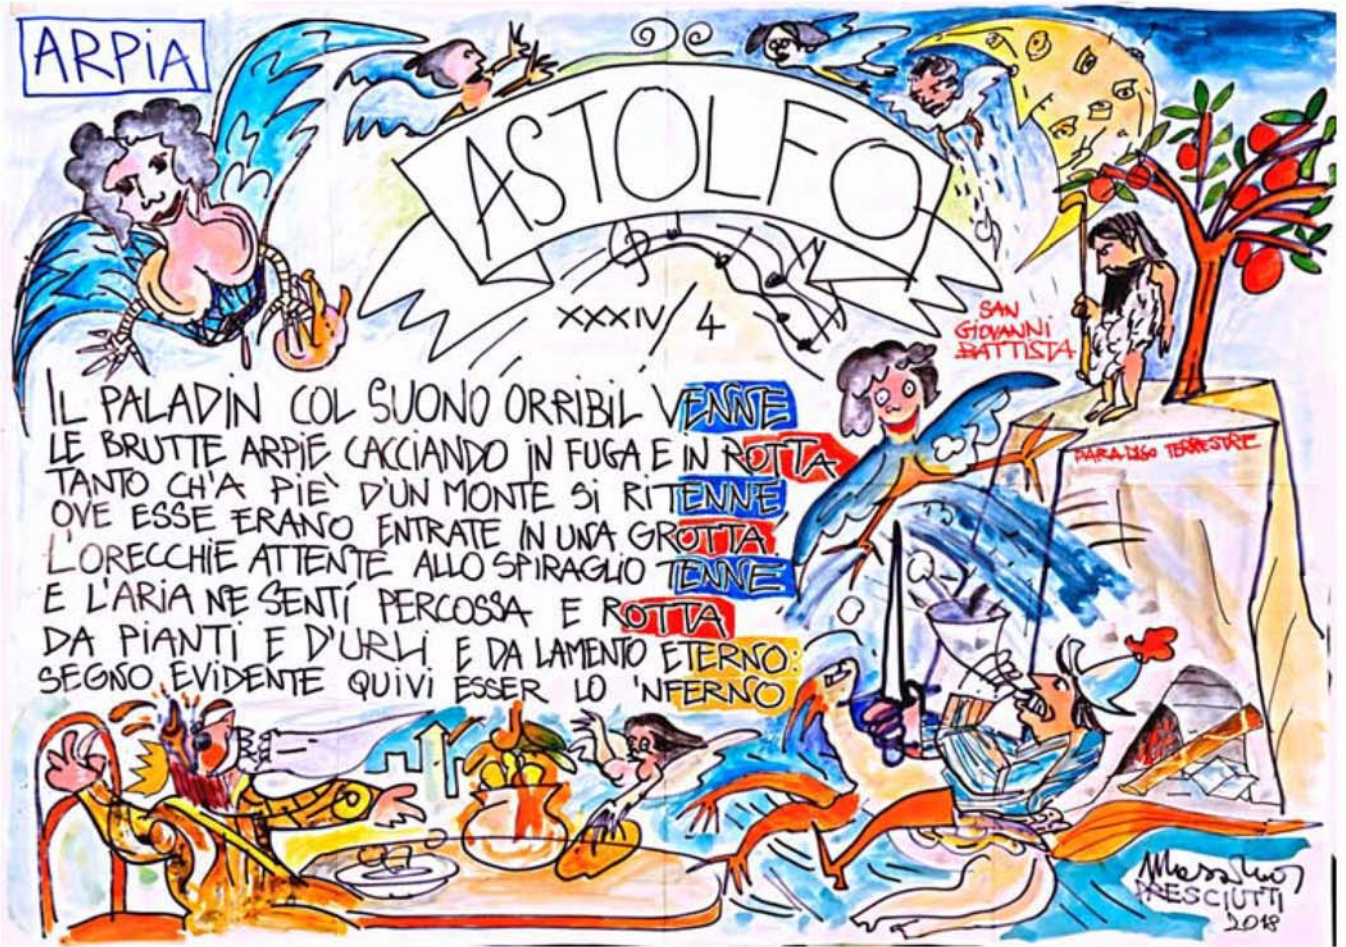 ARPIA
ASTOLFO
XXXIV/4
SAN
GIOVANNI
BATTISTA
PARADISO TERRESTRE
IL PALADIN COL SUONO ORRIBIL VENNE
LE BRUTTE ARPIE CACCIANDO IN FUGA E IN ROTTA
TANTO CH'A PIE' D'UN MONTE SI RITENNE
OVE ESSE ERANO ENTRATE IN UNA GROTTA
L'ORECCHIE ATTENTE ALLO SPIRAGLIO TENNE
E L'ARIA NE SENTÍ PERCOSSA E ROTTA
DA PIANTI E D'URLI E DA LAMENTO ETERNO:
SEGNO EVIDENTE QUIVI ESSER LO 'NFERNO
Massimo
PRESCIUTTI
2018